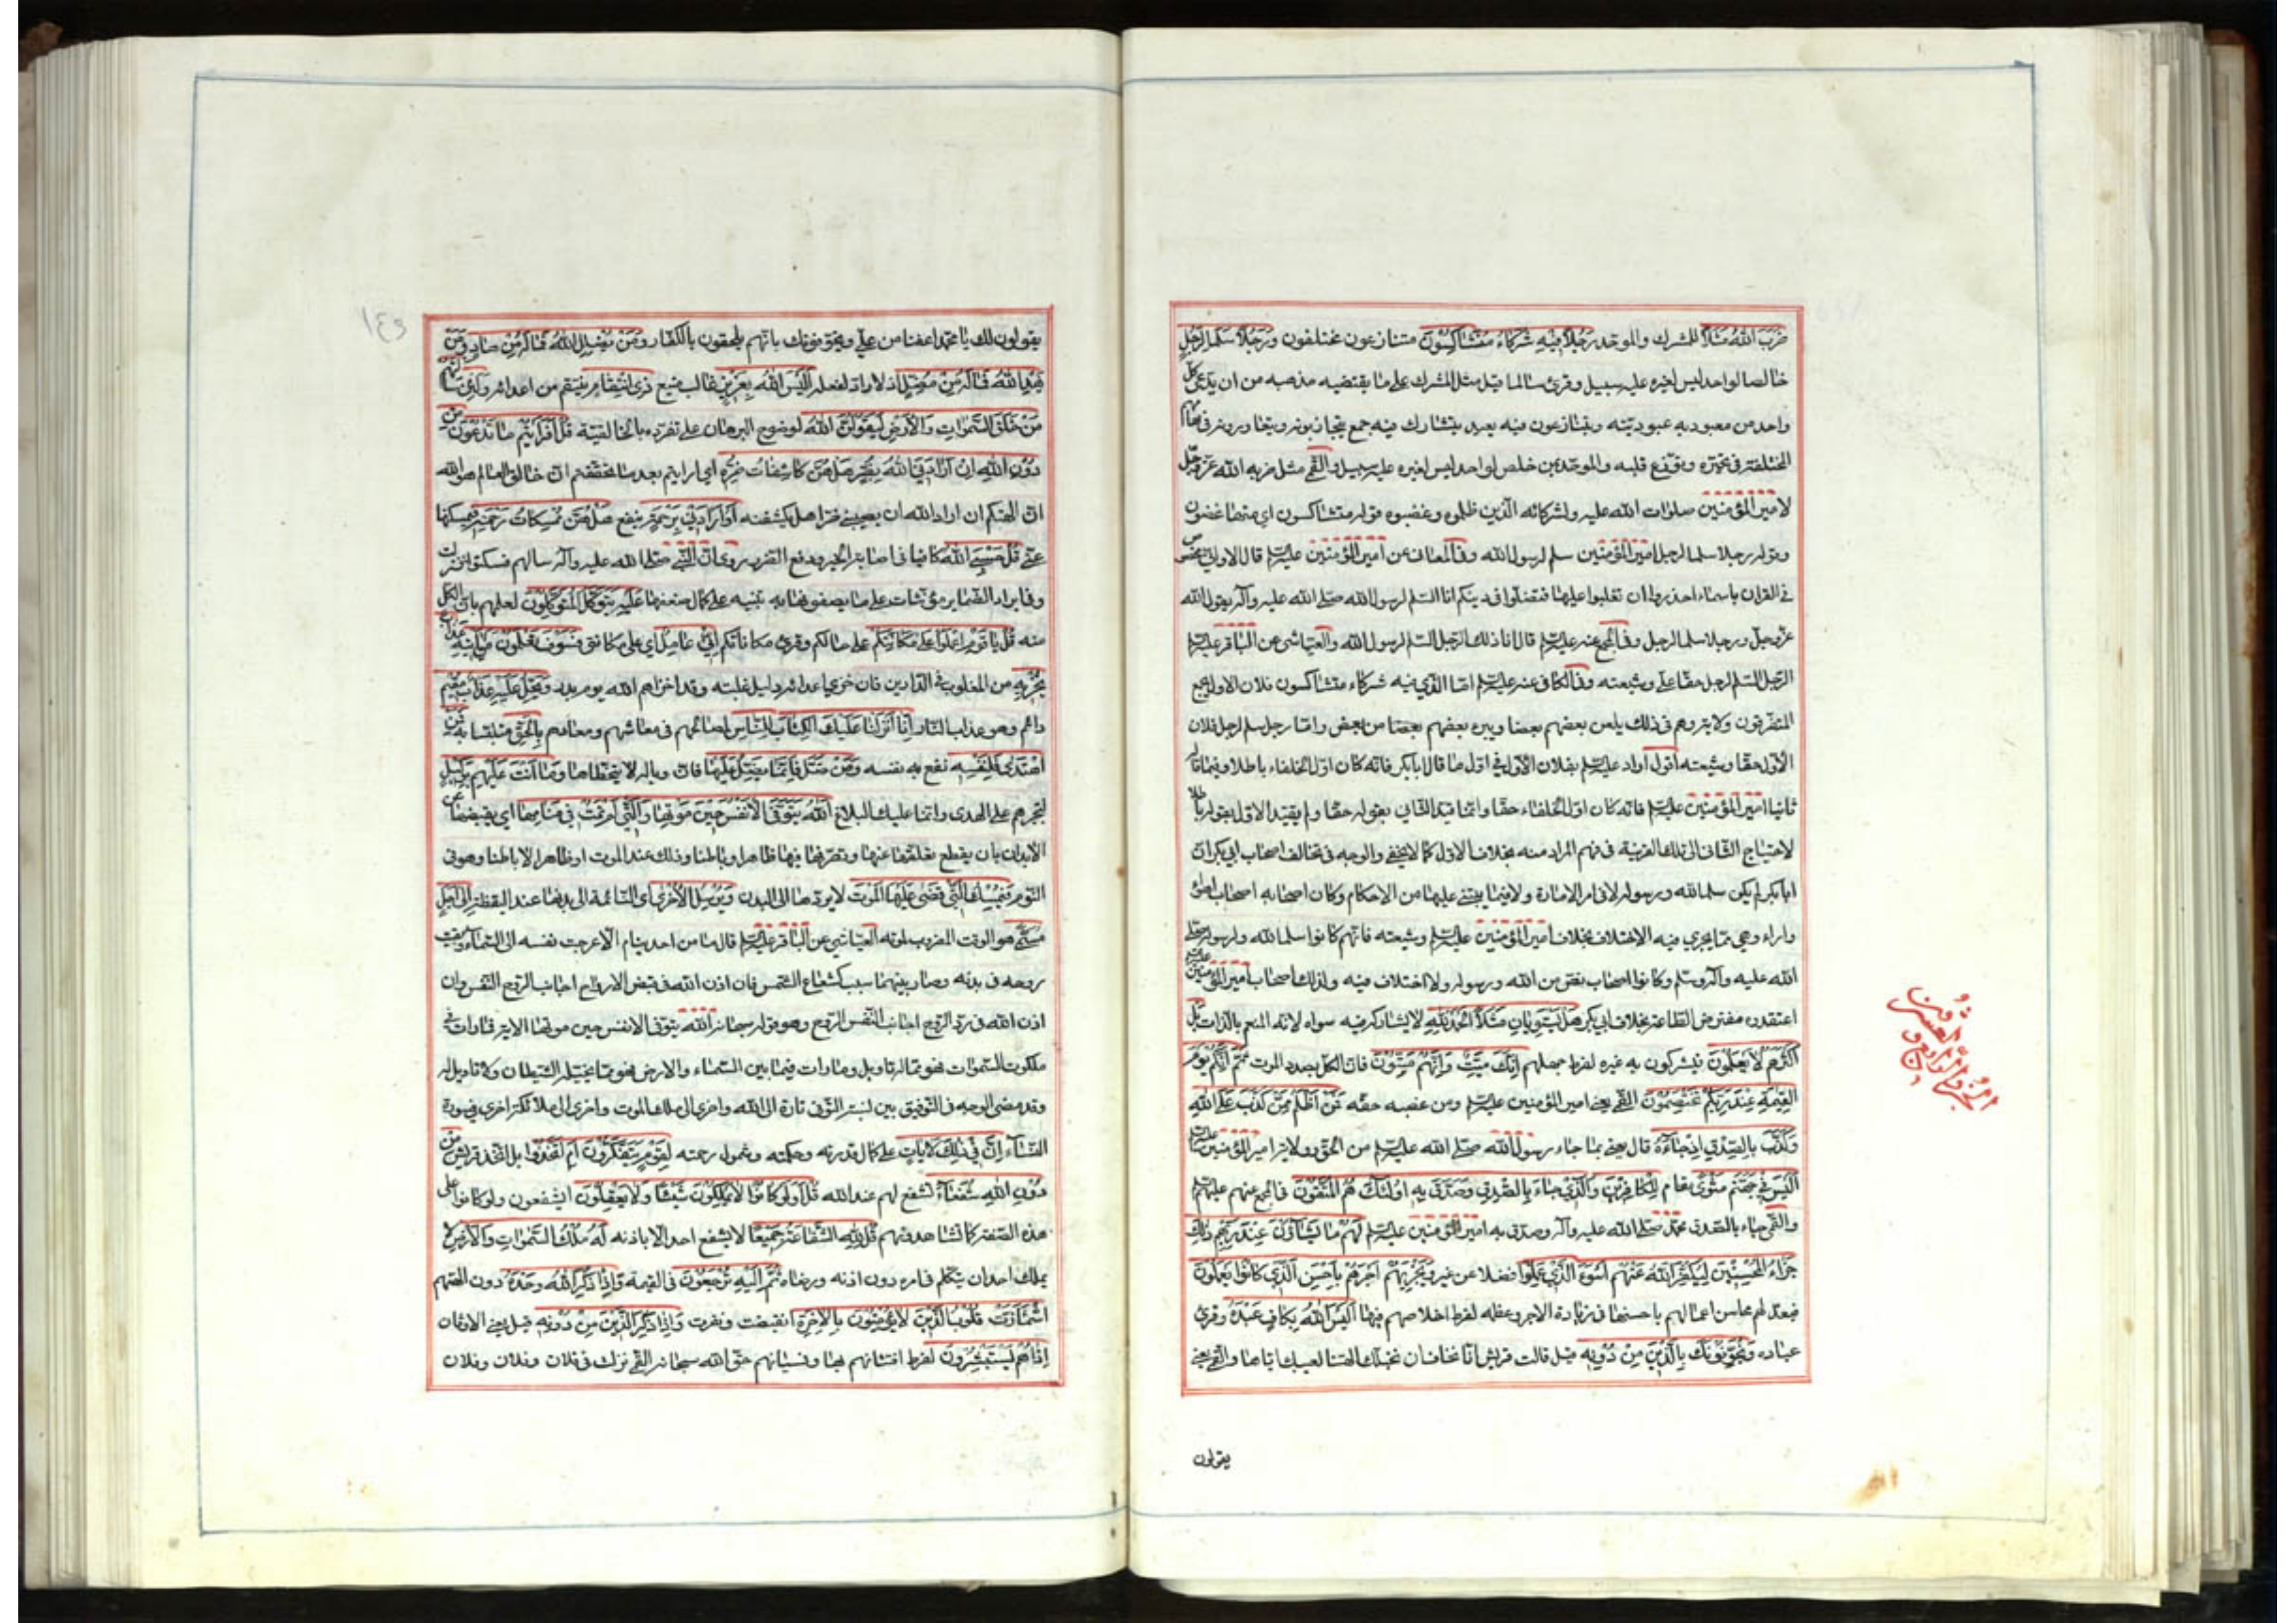 ضَرَبَ اللهُ مَثَلاً للمشرك والموحّد رَجُلاً فِيهِ شُرَكَاءُ مُتَشَاكِسُونَ متنازعون مختلفون وَرَجُلاً سَلَماً لِرَجُلٍ
خالصا لواحد ليس لغيره عليه سبيل وقرئ سالما مثل المشرك على ما يقتضيه مذهبه من ان يدعى كل
واحد من معبوديه عبوديته ويتنازعون فيه بعبد يتشارك فيه جمع يتجاذبونه ويتعاورونه فى مهامهم
المختلفة فى تحيّره وتوزّع قلبه والموحّد بمن خلص لواحد ليس لغيره عليه سبيل والقمّى مثل ضربه الله عزّ وجلّ
لامير المؤمنين صلوات الله عليه ولشركائه الّذين ظلموه وغصبوه قوله متشاكسون اى متباغضون
وقوله رجلا سلما لرجل امير المؤمنين سلم لرسول الله وفى المعانى عن امير المؤمنين عليه السلم قال الا وانى مخصوص
فى القران باسماء احذروا ان تغلبوا عليها فتضلّوا فى دينكم انا السّلم لرسول الله صلّى الله عليه وآله يقول الله
عزّ وجلّ ورجلا سلما لرجل وفى المجمع عنه عليه السلم قال انا ذلك الرّجل السّلم لرسول الله والعيّاشى عن الباقر عليه السلم
الرّجل السّلم لرجل حقّا علىّ وشيعته وفى الكافى عنه عليه السلم امّا الّذى فيه شركاء متشاكسون فلان الاوّل يجمع
المتفرّقون ولايته وهم فى ذلك يلعن بعضهم بعضا ويبرء بعضهم بعضا من بعض وامّا رجل سلم لرجل فلان
الاوّل حقّا وشيعته اقول اراد عليه السلم بفلان الاوّل فى اوّل ما قال ابا بكر فانّه كان اوّل الخلفاء باطلا وفيما قال
ثانيا امير المؤمنين عليه السلم فانّه كان اوّل الخلفاء حقّا وانّما قيّد الثّانى بقوله حقّا ولم يقيّد الاوّل بقوله باطلا
لاحتياج الثّانى الى تلك القرينة فى فهم المراد منه بخلاف الاوّل كما لا يخفى والوجه فى تخالف اصحاب ابى بكر انّ
ابا بكر لم يكن سلما لله ورسوله لا فى امر الامارة ولا فيما يبتنى عليها من الاحكام وكان اصحابه اصحاب اهواء
واراء وهى ممّا يجرى فيه الاختلاف بخلاف امير المؤمنين عليه السلم وشيعته فانّهم كانوا سلما لله ولرسوله صلى
الله عليه وآله وسلم وكانوا اصحاب نصّ من الله ورسوله ولا اختلاف فيه ولذلك اصحاب امير المؤمنين عليه السلم
اعتقدوه مفترض الطّاعة بخلاف ابى بكر هَلْ يَسْتَوِيَانِ مَثَلاً الْحَمْدُ لِلّٰهِ لا يشاركه فيه سواه لانّه المنعم بالذّات بَلْ
أَكْثَرُهُمْ لَا يَعْلَمُونَ فيشركون به غيره لفرط جهلهم إِنَّكَ مَيِّتٌ وَإِنَّهُمْ مَيِّتُونَ فانّ الكلّ بصدد الموت ثُمَّ إِنَّكُمْ يَوْمَ
الْقِيٰمَةِ عِنْدَ رَبِّكُمْ تَخْتَصِمُونَ القمّى يعنى امير المؤمنين عليه السلم ومن غصبه حقّه فَمَنْ أَظْلَمُ مِمَّنْ كَذَبَ عَلَى اللهِ
وَكَذَّبَ بِالصِّدْقِ إِذْ جَاءَهُ قال يعنى بما جاء رسول الله صلّى الله عليه السلم من الحقّ وولاية امير المؤمنين عليه السلم
أَلَيْسَ فِي جَهَنَّمَ مَثْوًى مقام لِلْكَافِرِينَ وَالَّذِي جَاءَ بِالصِّدْقِ وَصَدَّقَ بِهِ أُولٰئِكَ هُمُ الْمُتَّقُونَ فى المجمع عنهم عليهم السلم
والقمّى جاء بالصّدق محمّد صلّى الله عليه وآله وصدّق به امير المؤمنين عليه السلم لَهُمْ مَا يَشَاؤُنَ عِنْدَ رَبِّهِمْ ذٰلِكَ
جَزَاءُ الْمُحْسِنِينَ لِيُكَفِّرَ اللهُ عَنْهُمْ أَسْوَءَ الَّذِي عَمِلُوا فضلا عن غيره وَيَجْزِيَهُمْ أَجْرَهُمْ بِأَحْسَنِ الَّذِي كَانُوا يَعْمَلُونَ
فيعدّ لهم محاسن اعمالهم باحسنها فى زيادة الاجر وعظمه لفرط اخلاصهم فيها أَلَيْسَ اللهُ بِكَافٍ عَبْدَهُ وقرئ
عباده وَيُخَوِّفُونَكَ بِالَّذِينَ مِنْ دُونِهِ قيل قالت قريش انّا نخاف ان تخبلك الهتنا لعيبك ايّاها والقمى يعنى
يقولون
يقولون لك يا محمّد اعفنا من علىّ ويخوّفونك بانّهم يلحقون بالكفّار وَمَنْ يُضْلِلِ اللهُ فَمَا لَهُ مِنْ هَادٍ وَمَنْ
يَهْدِ اللهُ فَمَا لَهُ مِنْ مُضِلٍّ اذ لا رادّ لفعله أَلَيْسَ اللهُ بِعَزِيزٍ غالب منيع ذِي انْتِقَامٍ ينتقم من اعدائه وَلَئِنْ سَأَلْتَهُمْ
مَنْ خَلَقَ السَّمٰوَاتِ وَالْأَرْضَ لَيَقُولُنَّ اللهُ لوضوح البرهان على تفرّده بالخالقيّة قُلْ أَفَرَأَيْتُمْ مَا تَدْعُونَ مِنْ
دُونِ اللهِ إِنْ أَرَادَنِيَ اللهُ بِضُرٍّ هَلْ هُنَّ كَاشِفَاتُ ضُرِّهِ اى ارايتم بعد ما تحقّقتم انّ خالق العالم هو الله
انّ الهتكم ان اراد الله ان يصيبنى ضرّا هل يكشفنه أَوْ أَرَادَنِي بِرَحْمَةٍ بنفع هَلْ هُنَّ مُمْسِكَاتُ رَحْمَتِهِ فيمسكنها
عنّى قُلْ حَسْبِيَ اللهُ كافيا فى اصابة الخير ودفع الضّرّ روى انّ النّبىّ صلّى الله عليه وآله سالهم فسكتوا فنزلت
وفى ايراد الضّماير مؤنّثات على ما يصفونها به تنبيه على كمال ضعفها عَلَيْهِ يَتَوَكَّلُ الْمُتَوَكِّلُونَ لعلمهم بانّ الكلّ
منه قُلْ يَا قَوْمِ اعْمَلُوا عَلَى مَكَانَتِكُمْ على حالكم وقرئ مكاناتكم إِنِّي عَامِلٌ اى على مكانتى فَسَوْفَ تَعْلَمُونَ مَنْ يَأْتِيهِ عَذَابٌ
يُخْزِيهِ من المغلوب فى الدّارين فانّ خزى اعدائه دليل غلبته وقد اخزاهم الله يوم بدر وَيَحِلُّ عَلَيْهِ عَذَابٌ مُقِيمٌ
دائم وهو عذاب النّار إِنَّا أَنْزَلْنَا عَلَيْكَ الْكِتَابَ لِلنَّاسِ لمصالحهم فى معاشهم ومعادهم بِالْحَقِّ متلبّسا به فَمَنِ
اهْتَدَى فَلِنَفْسِهِ نفع به نفسه وَمَنْ ضَلَّ فَإِنَّمَا يَضِلُّ عَلَيْهَا فانّ وباله لا يتخطّاها وَمَا أَنْتَ عَلَيْهِمْ بِوَكِيلٍ
لتجبرهم على الهدى وانّما عليك البلاغ اللهُ يَتَوَفَّى الْأَنْفُسَ حِينَ مَوْتِهَا وَالَّتِي لَمْ تَمُتْ فِي مَنَامِهَا اى يقبضها عن
الابدان بان يقطع تعلّقها عنها وتصرّفها فيها ظاهرا وباطنا وذلك عند الموت او ظاهرا لا باطنا وهو فى
النّوم فَيُمْسِكُ الَّتِي قَضَى عَلَيْهَا الْمَوْتَ لا يردّها الى البدن وَيُرْسِلُ الْأُخْرَى اى النّائمة الى بدنها عند اليقظة إِلَى أَجَلٍ
مُسَمًّى هو الوقت المضروب لموته العيّاشى عن الباقر عليه السلم قال ما من احد ينام الّا عرجت نفسه الى السّماء وبقيت
روحه فى بدنه وصار بينهما سبب كشعاع الشّمس فان اذن الله فى قبض الارواح اجابت الرّوح النّفس وان
اذن الله فى ردّ الرّوح اجابت النّفس الرّوح وهو قوله سبحانه الله يتوفّى الانفس حين موتها الاية فما رات فى
ملكوت السّموات فهو ممّا له تاويل وما رات فيما بين السّماء والارض فهو ممّا يخيّله الشّيطان ولا تاويل له
وقد مضى الوجه فى التّوفيق بين نسبة التّوفّى تارة الى الله واخرى الى ملك الموت واخرى الى ملائكة اخرى فى سورة
النّساء إِنَّ فِي ذٰلِكَ لَآيَاتٍ على كمال قدرته وحكمته وشمول رحمته لِقَوْمٍ يَتَفَكَّرُونَ أَمِ اتَّخَذُوا بل اتّخذ قريش مِنْ
دُونِ اللهِ شُفَعَاءَ تشفع لهم عند الله قُلْ أَوَلَوْ كَانُوا لَا يَمْلِكُونَ شَيْئاً وَلَا يَعْقِلُونَ ايشفعون ولو كانوا على
هذه الصّفة كما تشاهدونهم قُلْ لِلّٰهِ الشَّفَاعَةُ جَمِيعاً لا يشفع احد الّا باذنه لَهُ مُلْكُ السَّمٰوَاتِ وَالْأَرْضِ لا
يملك احد ان يتكلّم فى امره دون اذنه ورضاه ثُمَّ إِلَيْهِ تُرْجَعُونَ فى القيمة وَإِذَا ذُكِرَ اللهُ وَحْدَهُ دون الهتهم
اشْمَأَزَّتْ قُلُوبُ الَّذِينَ لَا يُؤْمِنُونَ بِالْآخِرَةِ انقبضت ونفرت وَإِذَا ذُكِرَ الَّذِينَ مِنْ دُونِهِ قيل يعنى الاوثان
إِذَا هُمْ يَسْتَبْشِرُونَ لفرط افتتانهم بها ونسيانهم حقّ الله سبحانه القمّى نزلت فى فلان وفلان وفلان